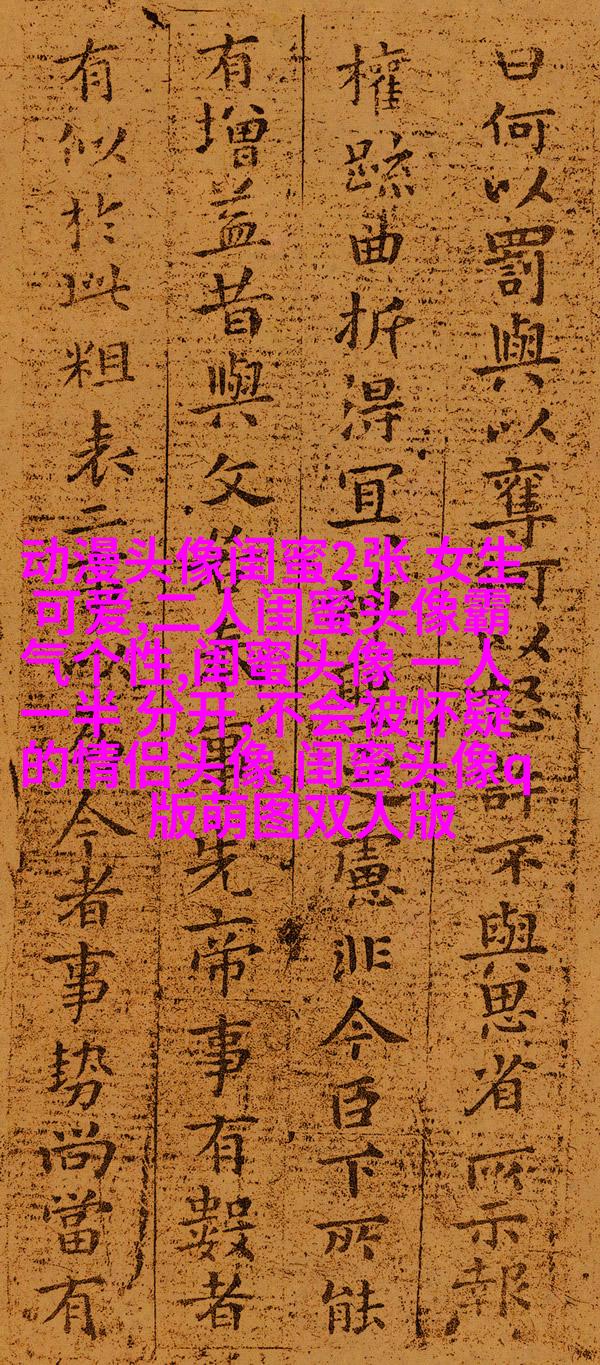 曰何以罰與以奪可以怒許不與思省所示報
權疏曲折得宜慮非今臣下所能
有增益昔與文事先帝事有數者
有似於此粗表二今者事勢尚當有
动漫头像闺蜜2张 女生
可爱,二人闺蜜头像霸
气个性,闺蜜头像 一人
一半 分开,不会被怀疑
的情侣头像,闺蜜头像q
版萌图双人版